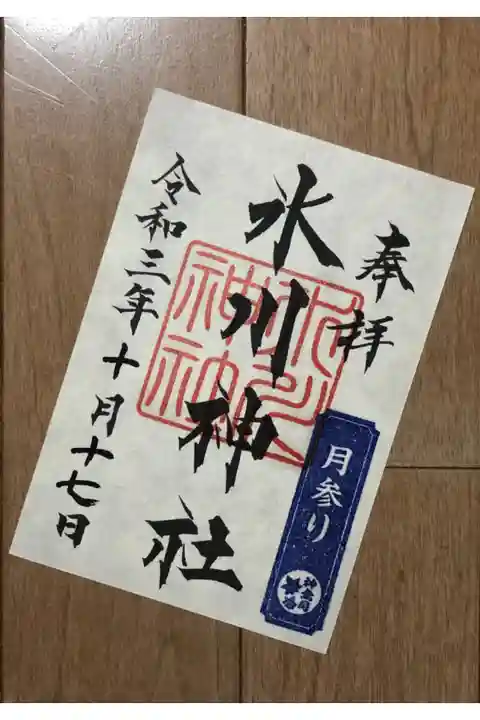 奉拝
氷川神社
令和三年十月十七日
月参り